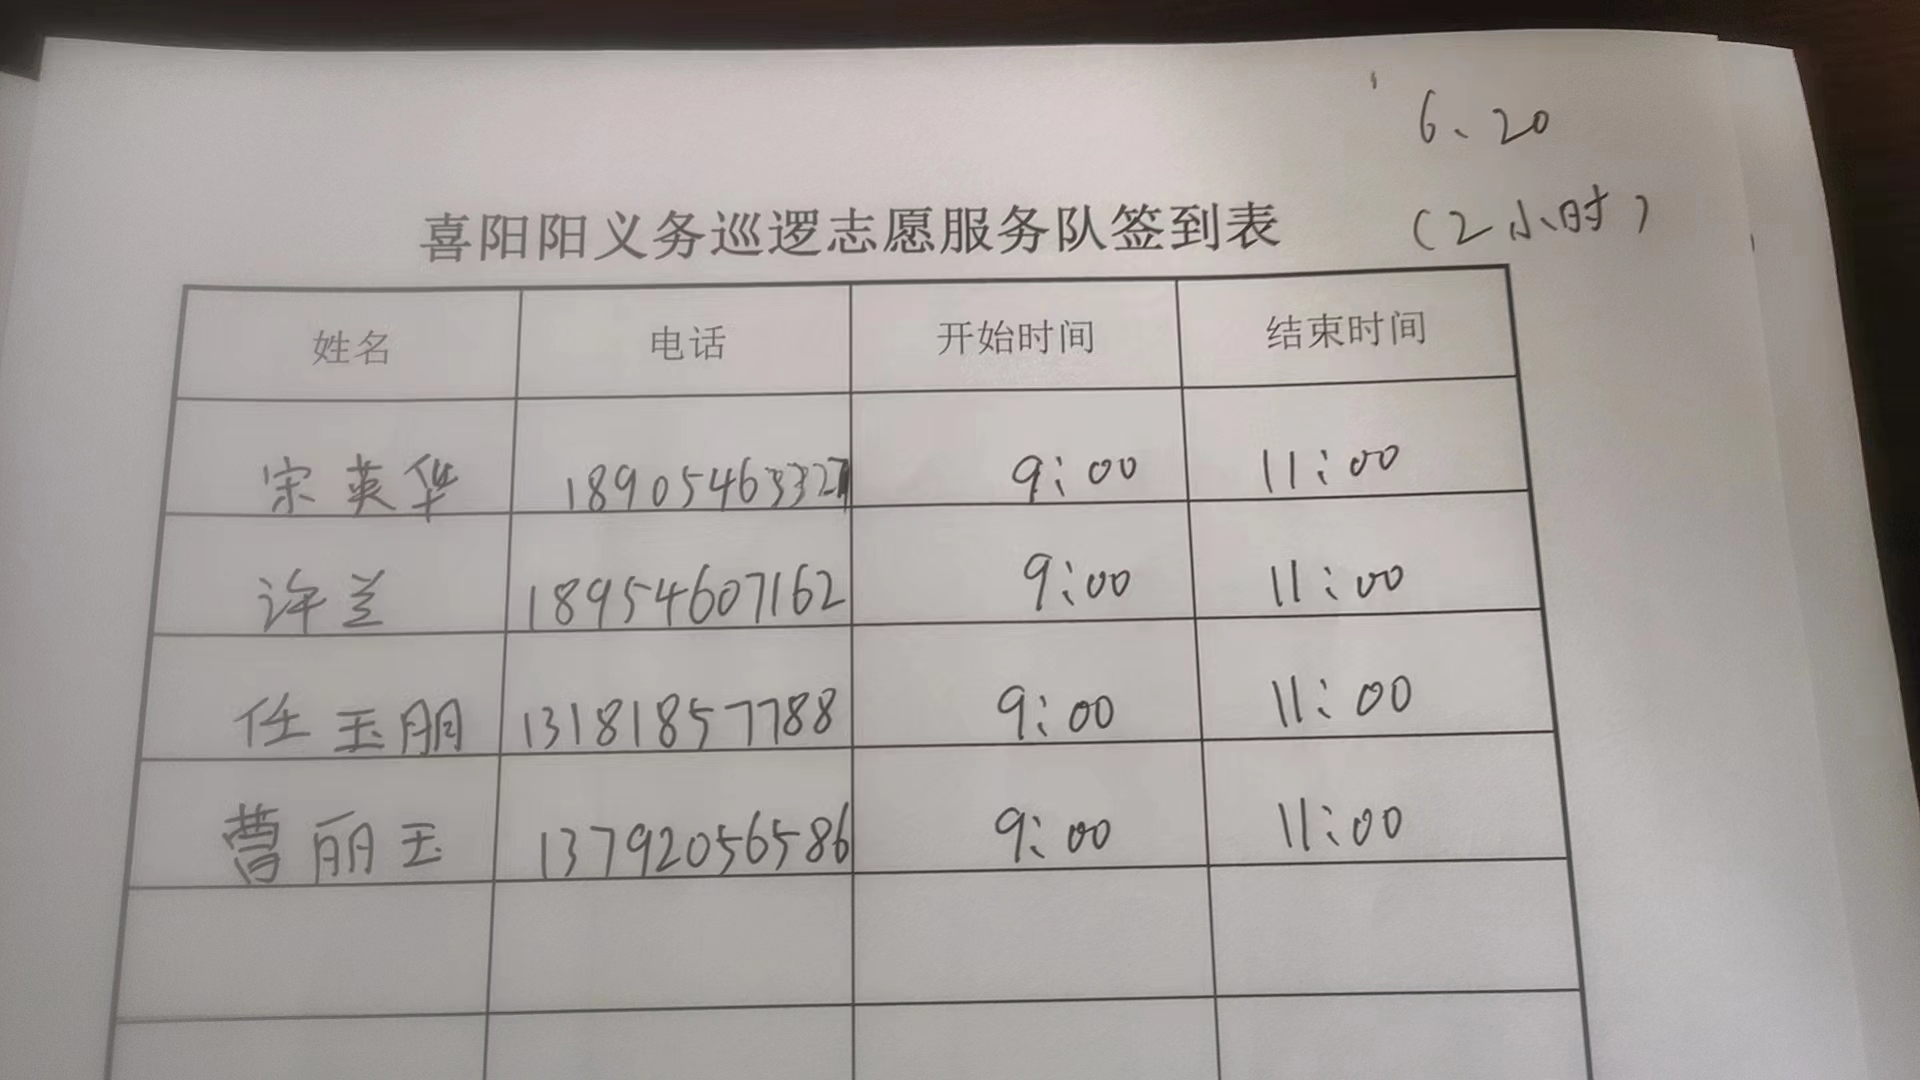 6、20
(2小时)
喜阳阳义务巡逻志愿服务队签到表
姓名 电话 开始时间 结束时间
宋英华 18905463327 9:00 11:00
许兰 18954607162 9:00 11:00
任玉朋 13181857788 9:00 11:00
曹丽玉 13792056586 9:00 11:00